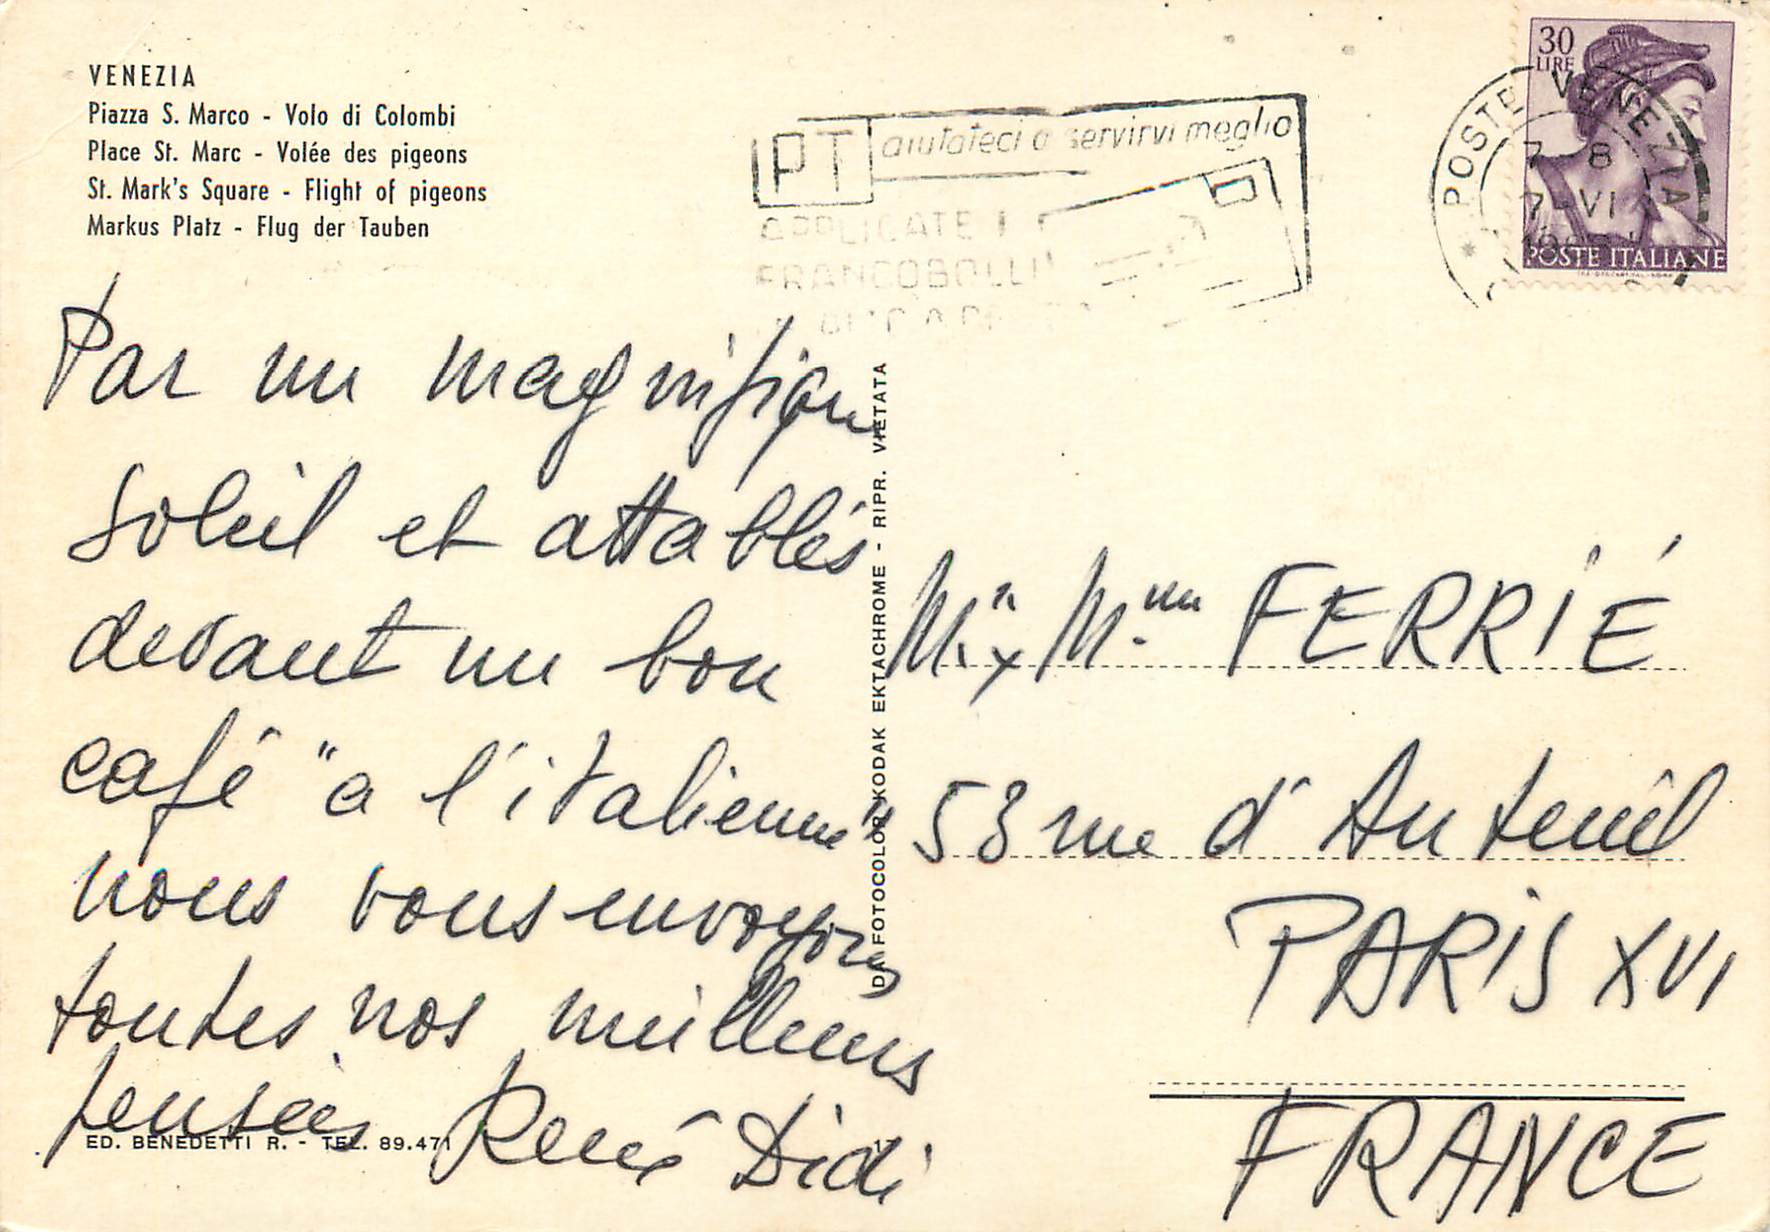 VENEZIA
Piazza S. Marco - Volo di Colombi
Place St. Marc - Volée des pigeons
St. Mark's Square - Flight of pigeons
Markus Platz - Flug der Tauben
PT aiutateci a servirvi meglio
APPLICATE I
FRANCOBOLLI
30
LIRE
POSTE ITALIANE
POSTE VENEZIA
7 - 8
7-VI
Par un magnifique
soleil et attablés
devant un bon
café "a l'italienne"
nous vous envoyons
toutes nos meilleurs
pensées René Didi
DA FOTOCOLOR KODAK EKTACHROME - RIPR. VIETATA
Mr x Mme FERRIÉ
53 rue d'Auteuil
PARIS XVI
FRANCE
ED. BENEDETTI R. - TEL. 89.471